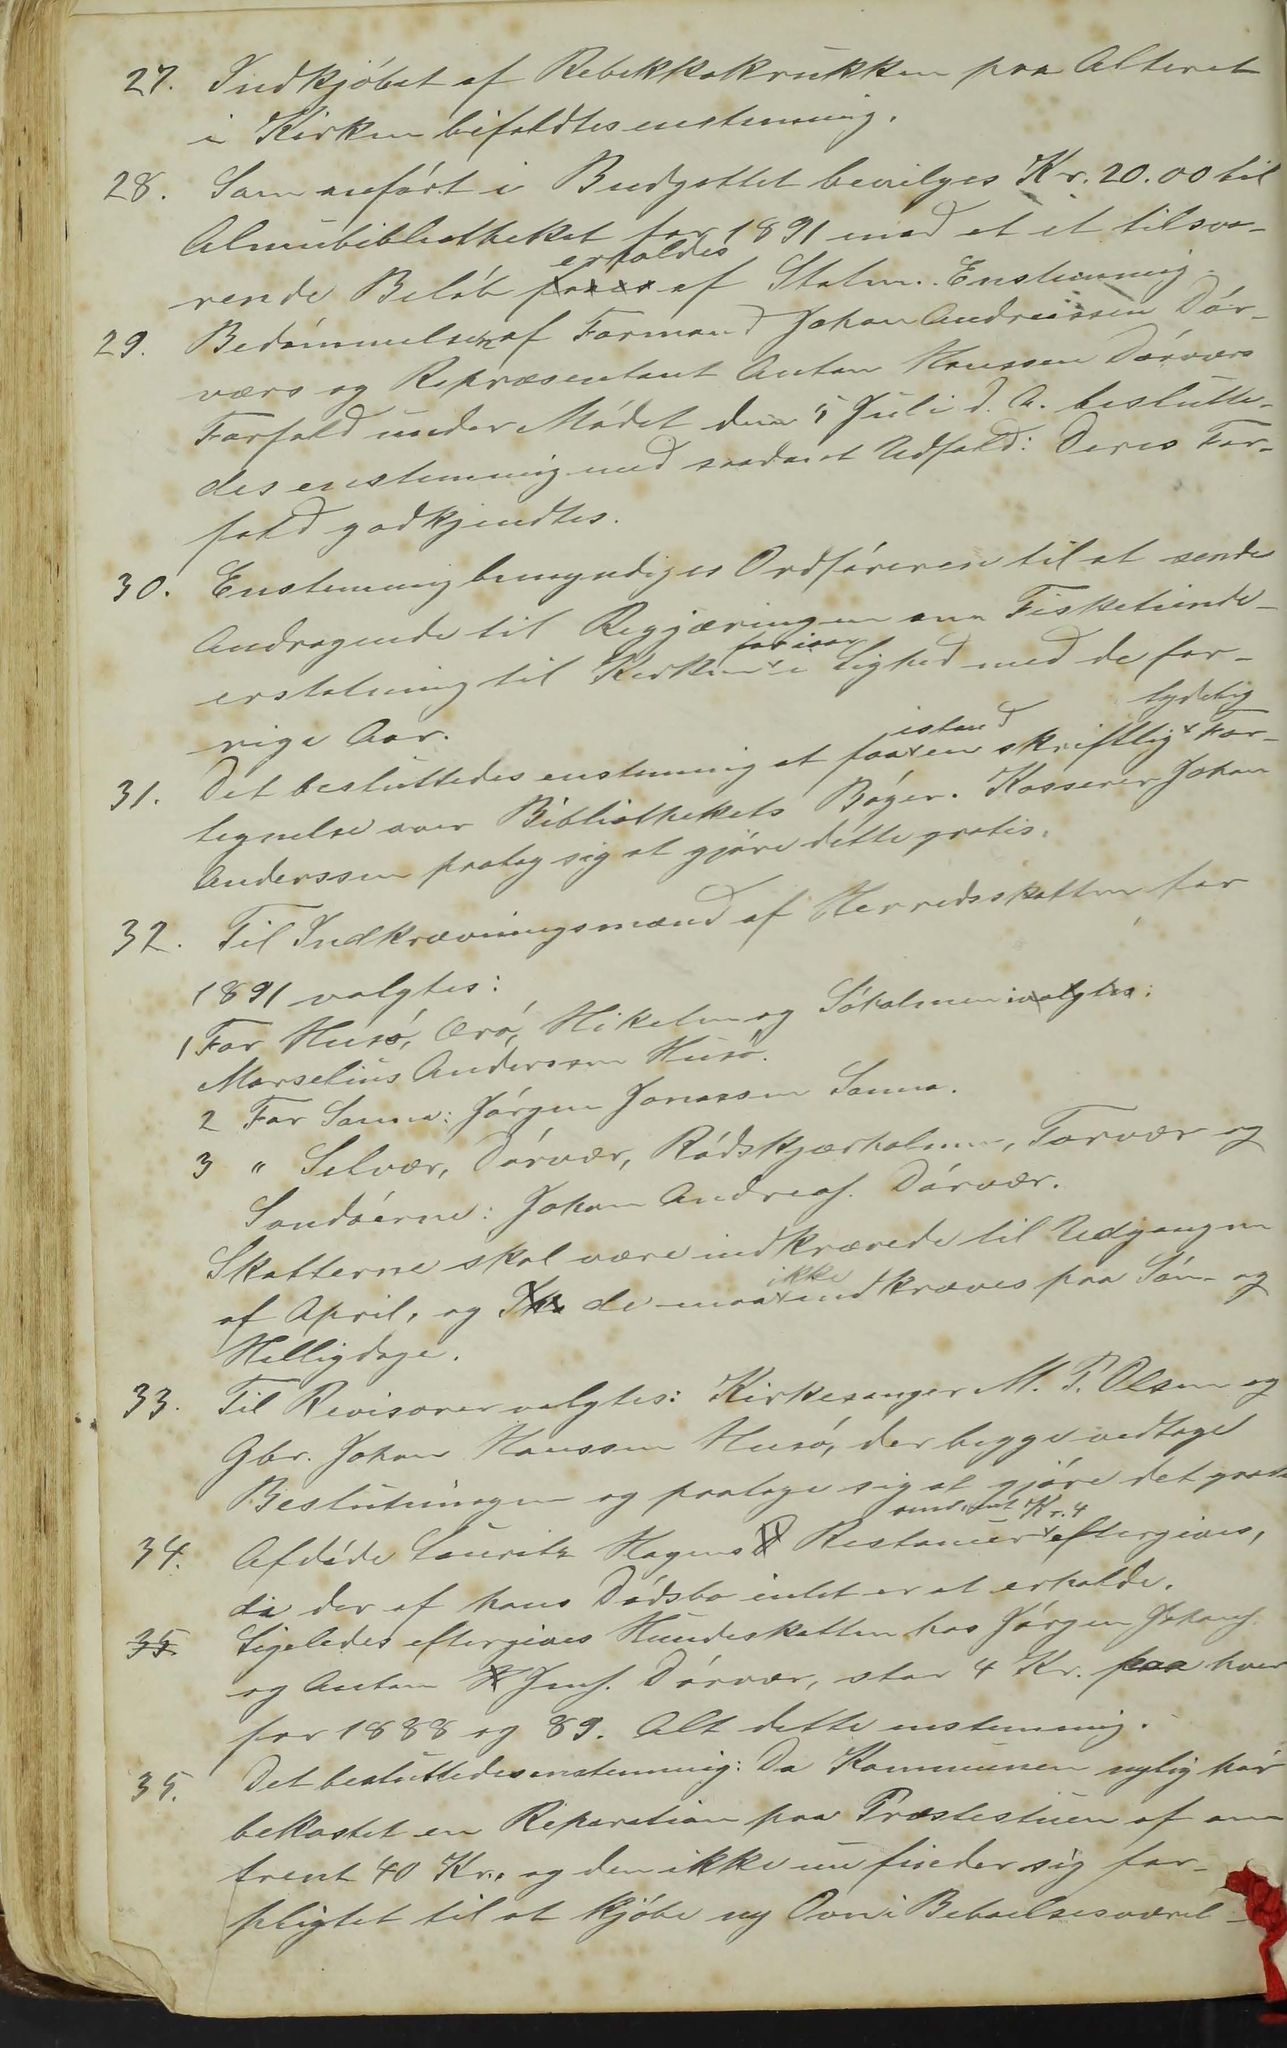 27. Indkjøbet af Rebekkakrukken paa Alteret
i Kirken bifaldtes enstemmig.
28. Som anført i Budgettet bevilges Kr. 20.00 til
Almuebibliotheket for 1891 mod at et tilsva-
erholdes
rende Beløb faaes af Staten. Enstemmig.
29. Bedømmelsen af Formand Johan Andreassen Dør-
værs og Repræsentant Anton Hanssen Dørværs
Forfald under Mødet den 5 Juli d. A. beslutte-
des enstemmig med saadant Udfald: Deres For-
fald godkjendtes.
30. Enstemmig bemyndiges Ordføreren til at sende
Andragende til Regjæringen om Fisketiende-
for iaar
erstatning til Kirken i Lighed med de for-
rige Aar.
istand tydelig
31. Det besluttedes enstemmig at faa en skriftlig For-
tegnelse over Bibliothekets Bøger. Kasserer Johan
Anderssen paatog sig at gjøre dette gratis.
32. Til Indkrævningsmænd af Herredsskatten for
1891 valgtes:
1 For Husø, Ærø, Hikelen og Søholmen valgtes:
Marselius Anderssen Husø.
2 For Sanna: Jørgen Jonassen Sanna.
3 " Selvær, Dørvær, Rødskjærholmen, Torvær og
Sandøerne: Johan Andreas. Dørvær.
Skatterne skal være indkrævede til Udgangen
ikke
af April, og de maa indkræves paa Søn- og
Helligdage.
33. Til Revisorer valgtes: Kirkesanger M. P. Olsen og
Gbr. Johan Hanssen Husø, der begge vedtage
Beslutningen og paatage sig at gjøre det gratis
omtrent Kr. 4
34. Afdøde Lauritz Hagens Restancer eftergives,
da der af hans Dødsbo intet er at erholde.
35. Ligeledes eftergives Hundeskatten hos Jørgen Johans.
og Anton H Jens. Dørvær, stor 4 Kr. paa hver
for 1888 og 89. Alt dette enstemmig.
35. Det besluttedes enstemmig: Da Kommunen nylig har
bekostet en Reparation paa Præstestuen af om-
trent 40 Kr., og den ikke nu finder sig for-
pligtet til at kjøbe ny Ovn i Beboelsesværel-